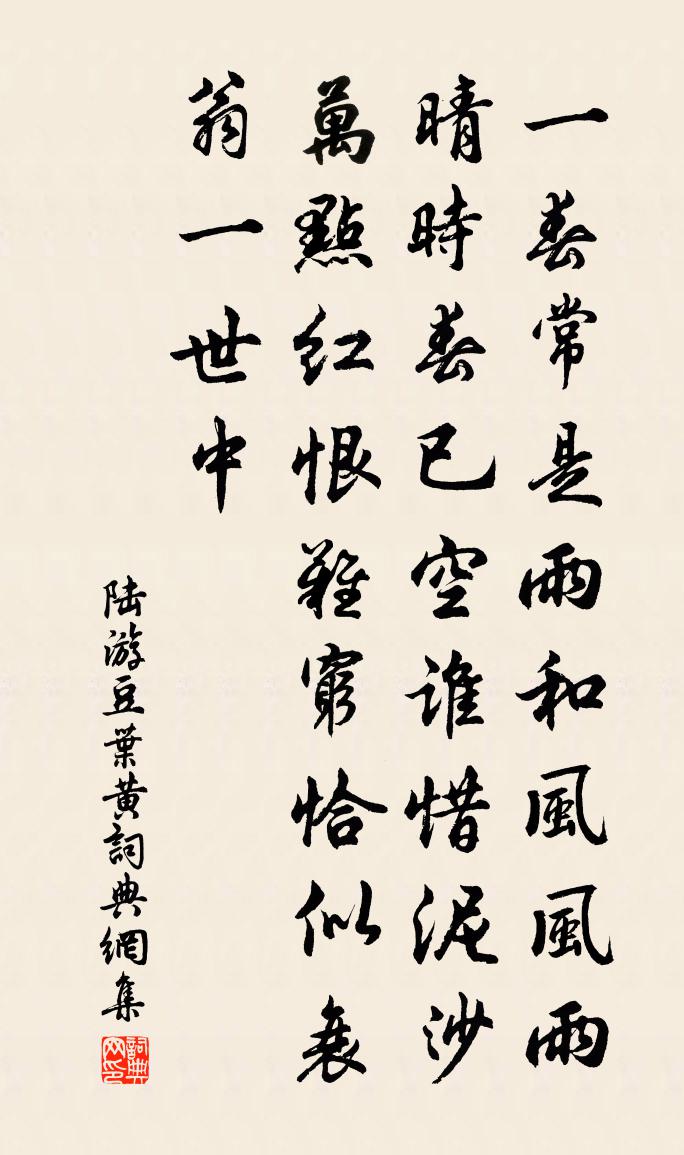 一春常是雨和風風雨
晴時春已空誰惜泥沙
萬點紅恨難窮恰似衰
翁一世中
陸游豆葉黃詞典網集
詞典网印